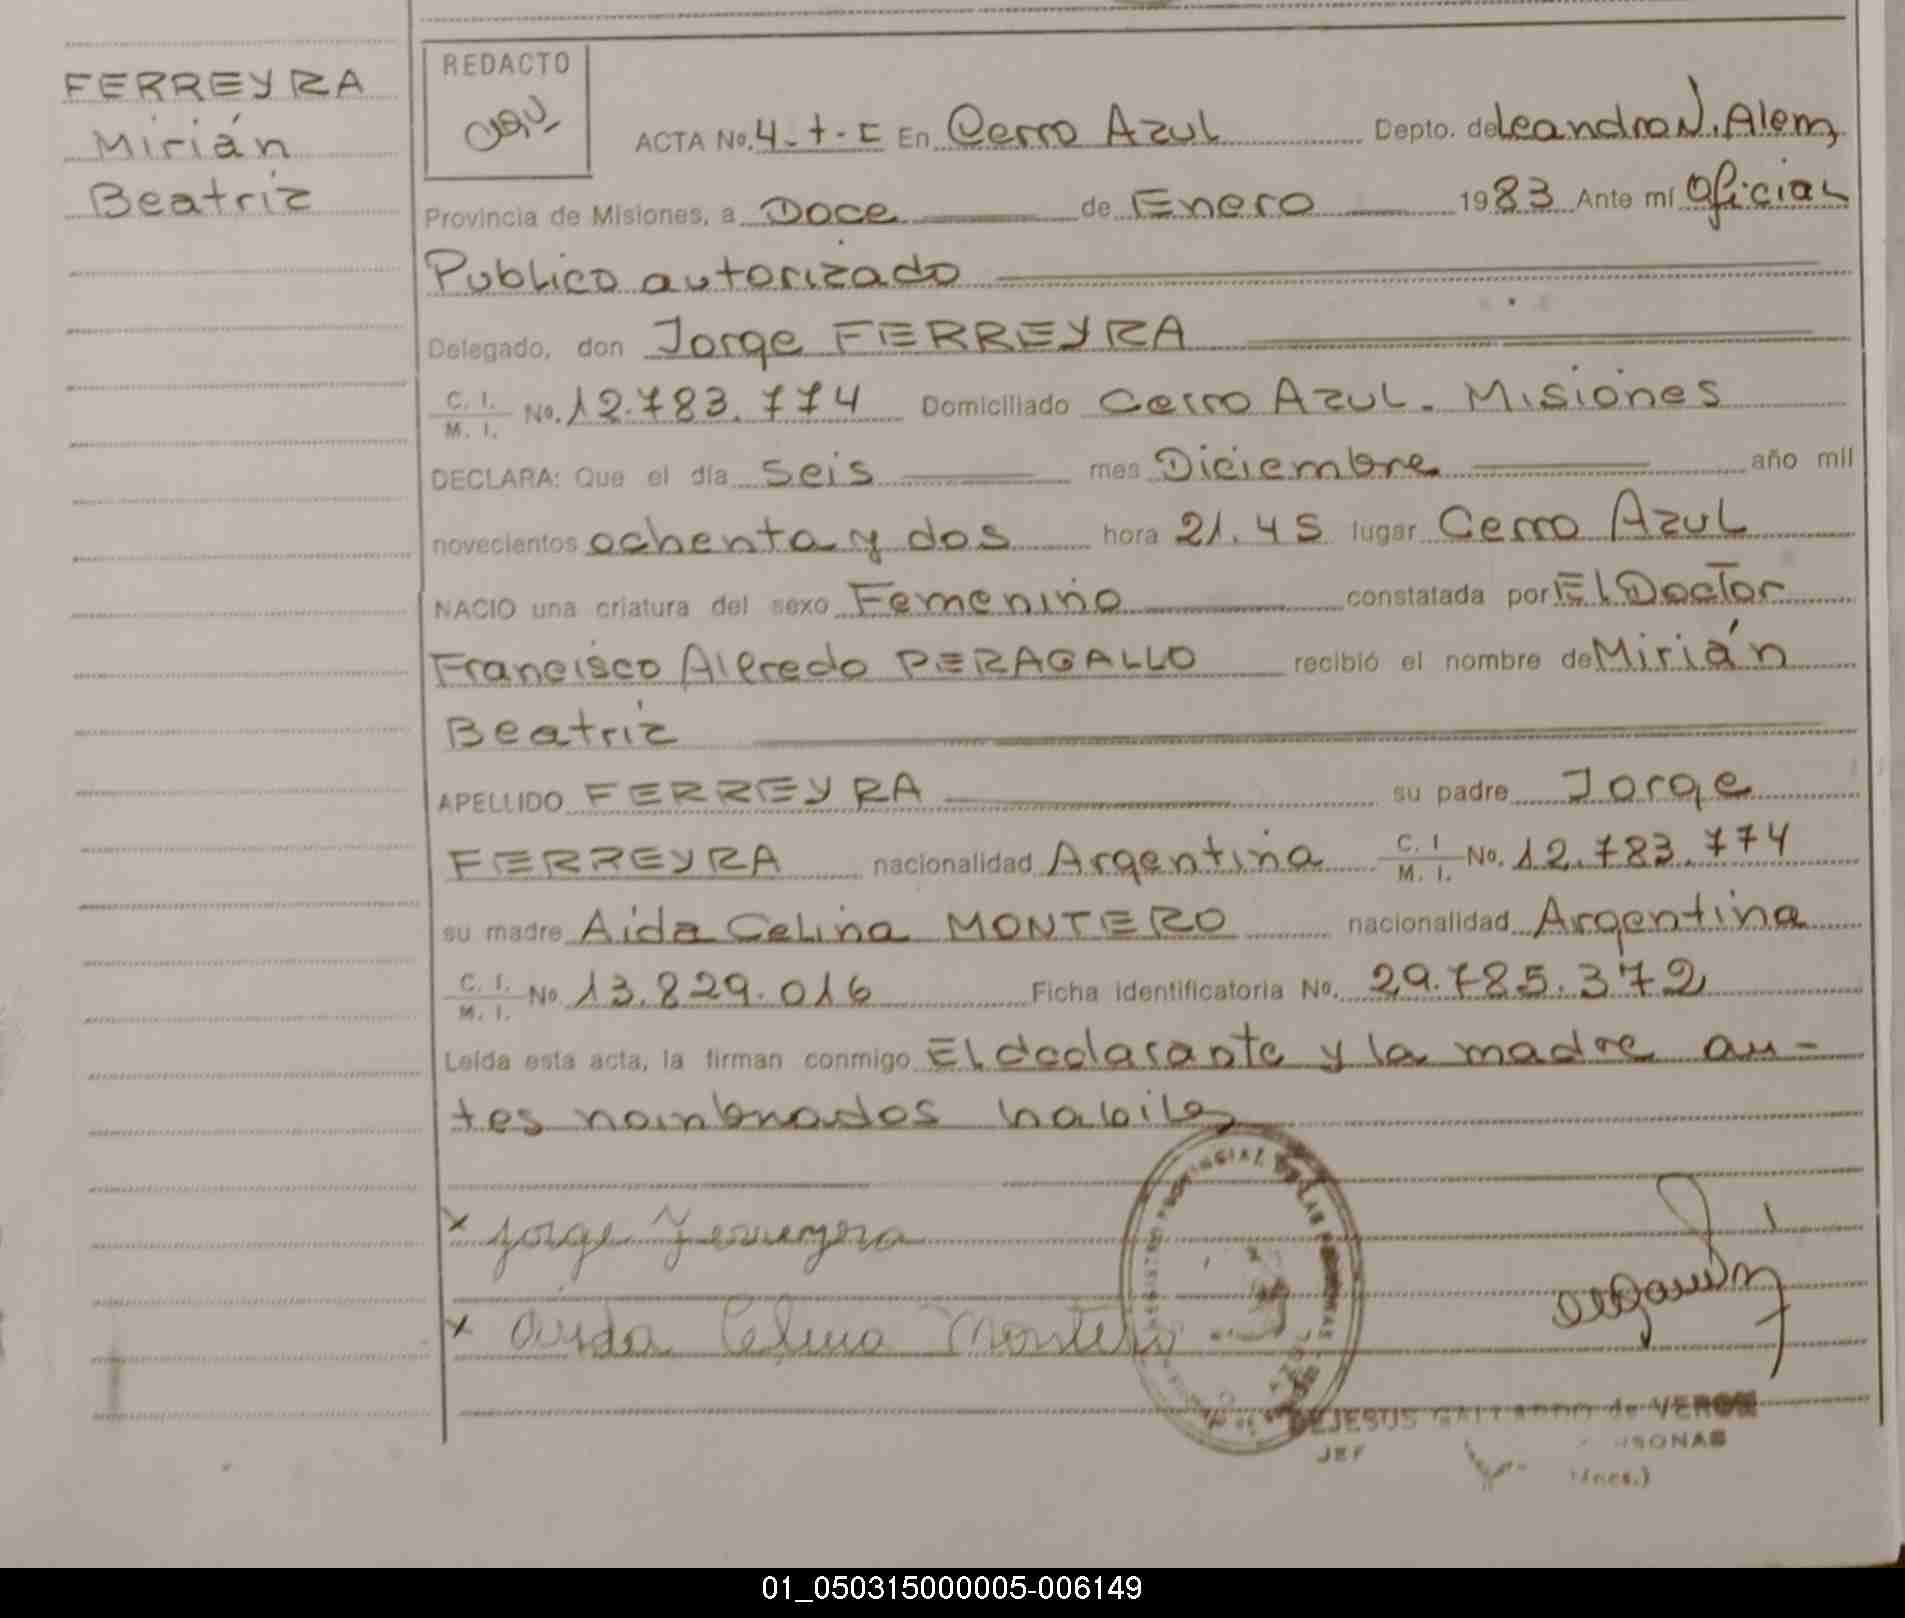 FERREYRA
Mirián
Beatriz
REDACTO
ACTA No. 4-t-c En Cerro Azul Depto. de Leandro N. Alem
Provincia de Misiones, a Doce de Enero 1983 Ante mí Oficial
Publico autorizado
Delegado, don Jorge FERREYRA
C. I. / M. I. No. 12.783.774 Domiciliado Cerro Azul. Misiones
DECLARA: Que el día seis mes Diciembre año mil
novecientos ochenta y dos hora 21.45 lugar Cerro Azul
NACIO una criatura del sexo Femenino constatada por El Doctor
Francisco Alfredo PERAGALLO recibió el nombre de Mirián
Beatriz
APELLIDO FERREYRA su padre Jorge
FERREYRA nacionalidad Argentina C. I / M. I. No. 12.783.774
su madre Aida Celina MONTERO nacionalidad Argentina
C. I. / M. I. No 13.829.016 Ficha identificatoria No. 29.785.372
Leída esta acta, la firman conmigo El declarante y la madre an-
tes nombrados habiles
x Jorge Ferreyra
x Aida Celina Montero
JESUS GALLARDO de VERON
JEF
01_050315000005-006149